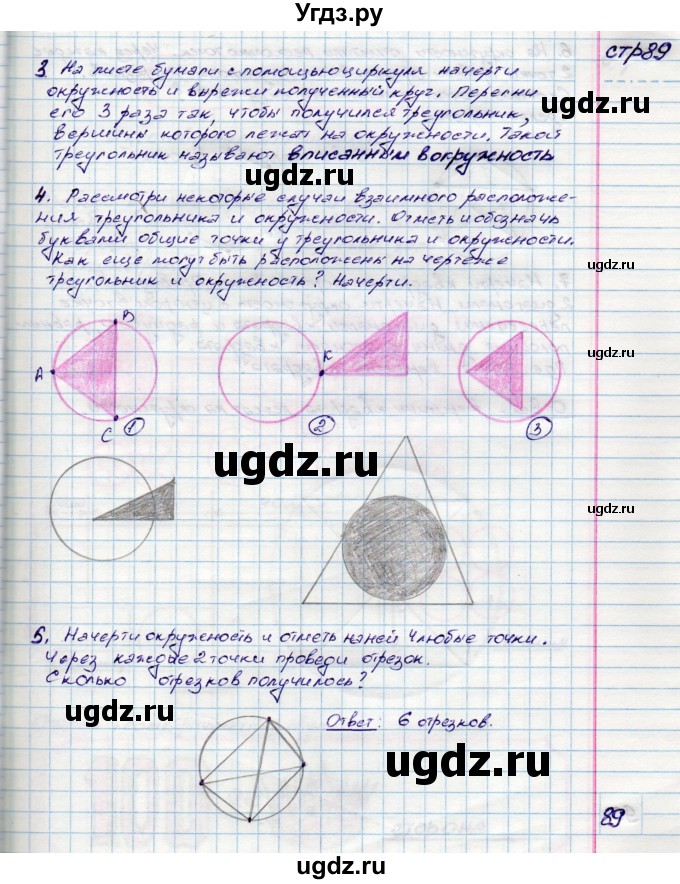 Угдз.ру
стр89
3 На листе бумаги с помощью циркуля начерти
окружность и вырежи полученный круг. Перегни
его 3 раза так, чтобы получился треугольник,
вершины которого лежат на окружности. Такой
треугольник называют вписанным в окружность
ugdz.ru
ugdz.ru
4. Рассмотри некоторые случаи взаимного расположе-
ния треугольника и окружности. Отметь и обозначь
буквами общие точки у треугольника и окружности.
Как еще могут быть расположены на чертеже
треугольник и окружность? Начерти.
ugdz.ru
B
A
K
C
1
2
3
ugdz.ru
ugdz.ru
5. Начерти окружность и отметь на ней 4 любые точки.
Через каждые 2 точки проведи отрезок.
Сколько отрезков получилось?
Ответ: 6 отрезков.
ugdz.ru
ugdz.ru
ugdz.ru
89
ugdz.ru